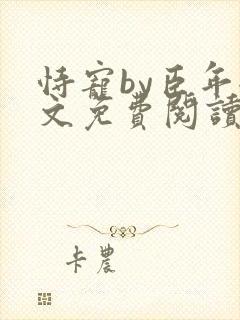 恃寵by臣年
文免費閱讀
卡農